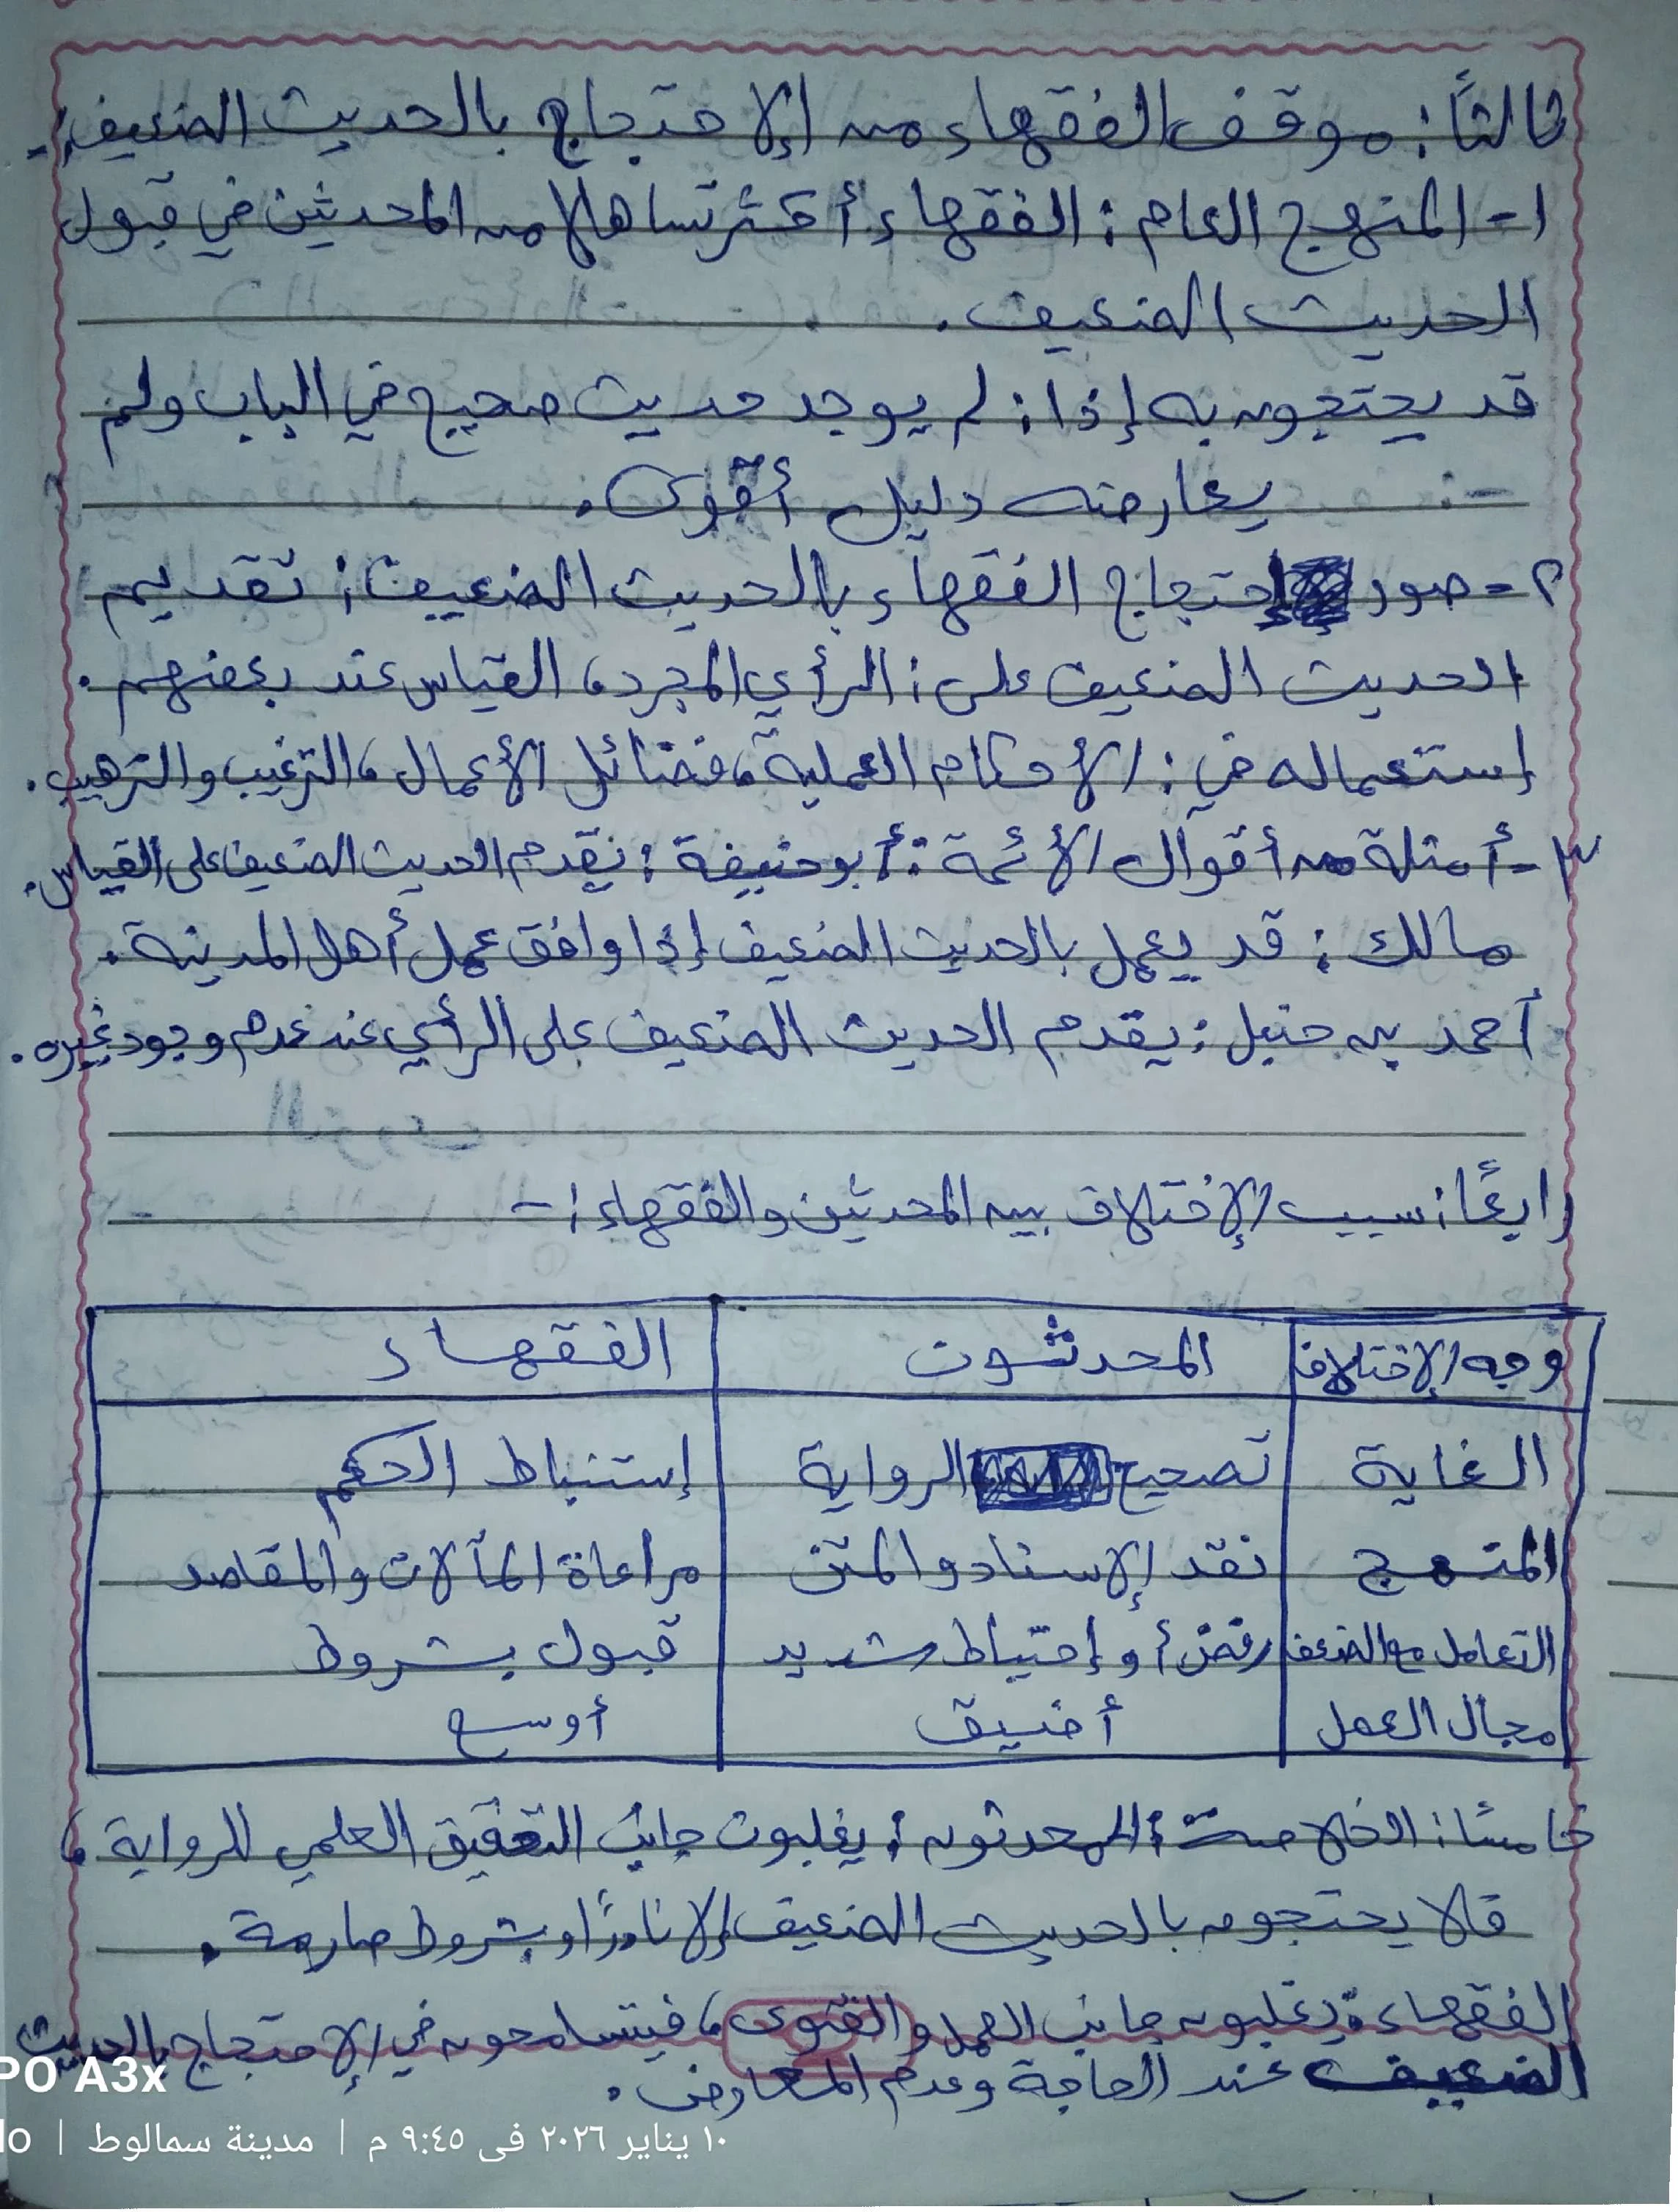 ثالثاً: موقف الفقهاء من الإحتجاج بالحديث الضعيف:-
١- المنهج العام: الفقهاء أكثر تساهلا من المحدثين في قبول
الحديث الضعيف.
قد يحتجون به إذا: لم يوجد حديث صحيح في الباب ولم
يعارضه دليل أقوى.
٢- صور احتجاج الفقهاء بالحديث الضعيف: تقديم
الحديث الضعيف على: الرأي المجرد، القياس عند بعضهم.
إستعماله في: الأحكام العملية، فضائل الأعمال، الترغيب والترهيب.
٣- أمثلة من أقوال الأئمة: أبو حنيفة: نقدم الحديث الضعيف على القياس.
مالك: قد يعمل بالحديث الضعيف إذا وافق عمل أهل المدينة.
أحمد بن حنبل: يقدم الحديث الضعيف على الرأي عند عدم وجود غيره.
رابعًا: سبب الإختلاف بين المحدثين والفقهاء:-
وجه الإختلاف | المحدثون | الفقهاء
الغاية | تصحيح الرواية | إستنباط الحكم
المنهج | نقد الإسناد والمتن | مراعاة المآلات والمقاصد
التعامل مع الضعف | رفض أو إحتياط شديد | قبول بشروط
مجال العمل | أضيق | أوسع
خامسًا: الخلاصة: المحدثون: يغلبون جانب التحقيق العلمي للرواية،
فلا يحتجون بالحديث الضعيف إلا نادرًا وبشروط صارمة.
الفقهاء: يغلبون جانب العمل والفتوى، فيتسامحون في الإحتجاج بالحديث
الضعيف عند الحاجة وعدم المعارض.
PO A3x
١٠ يناير ٢٠٢٦ فى ٩:٤٥ م | مدينة سمالوط | lo